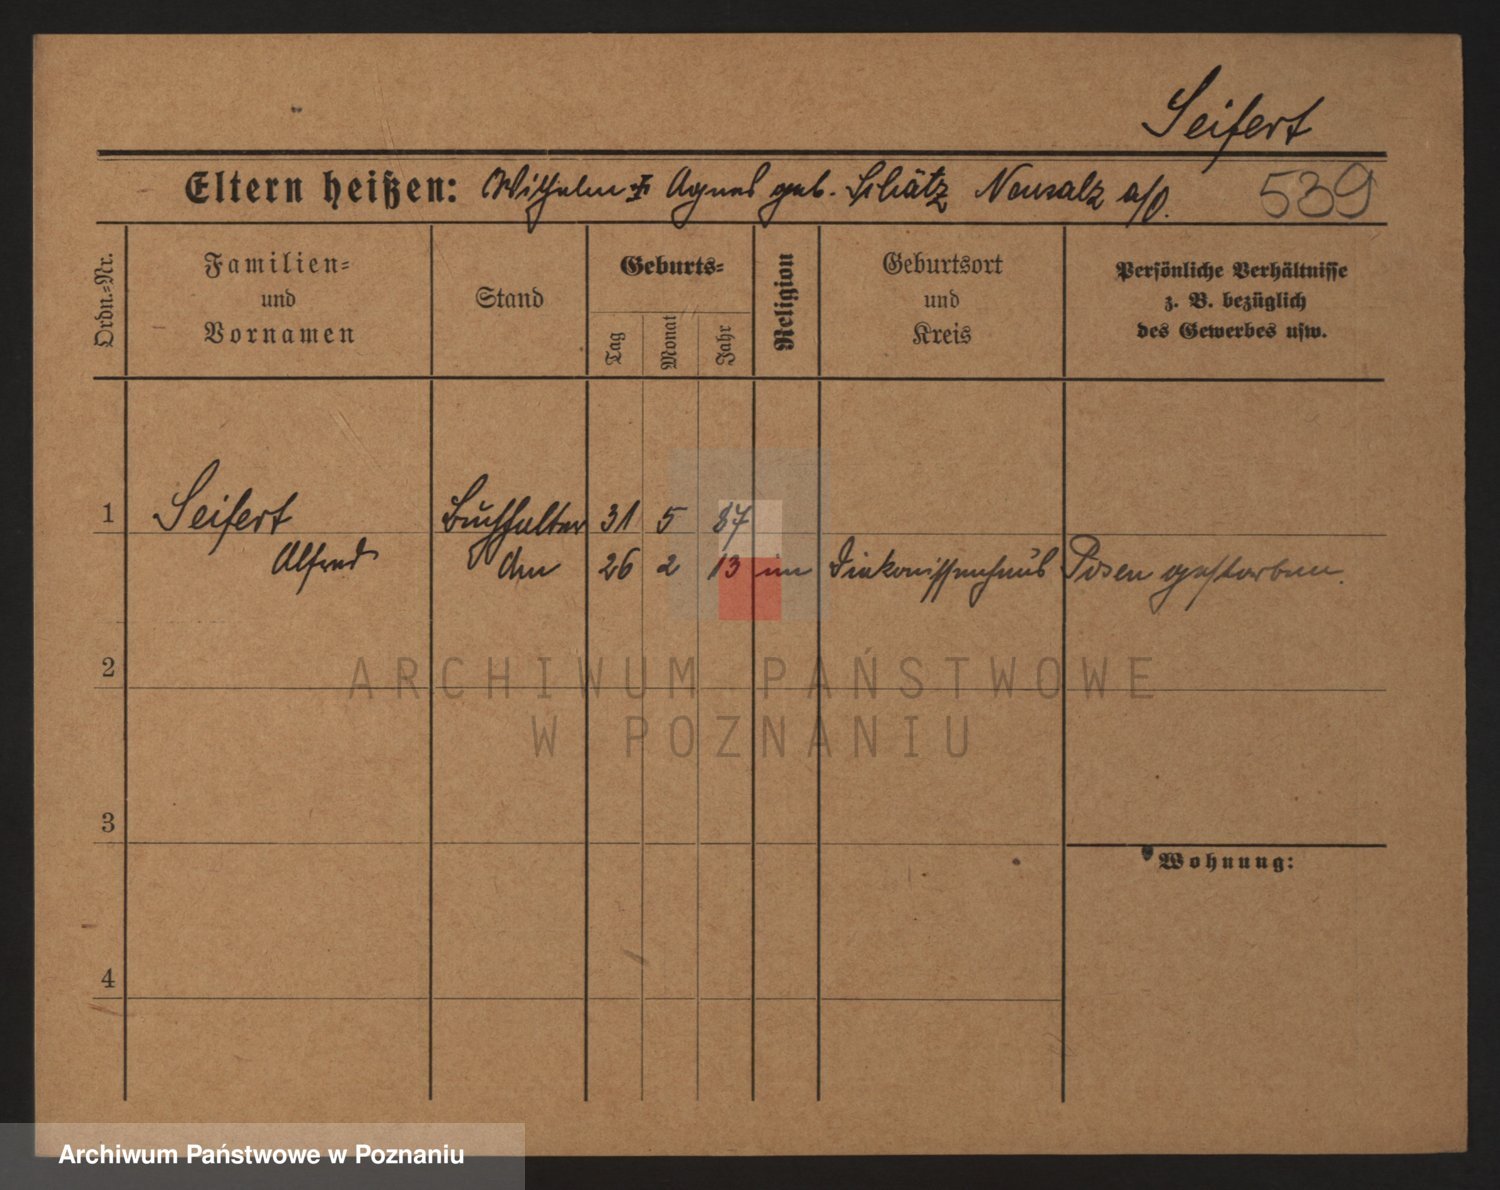 Seifert
Eltern heißen: Wilhelm + Agnes geb. Schätz Neusalz a/O. 539
Ordn.=Nr.
Familien=
und
Vornamen
Stand
Geburts=
Tag
Monat
Jahr
Religion
Geburtsort
und
Kreis
Persönliche Verhältnisse
z. B. bezüglich
des Gewerbes usw.
1 Seifert Buchhalter 31 5 87
Alfred den 26 2 13 im Diakonissenhaus Posen gestorben.
2
ARCHIWUM PAŃSTWOWE
W POZNANIU
3
Wohnung:
4
Archiwum Państwowe w Poznaniu